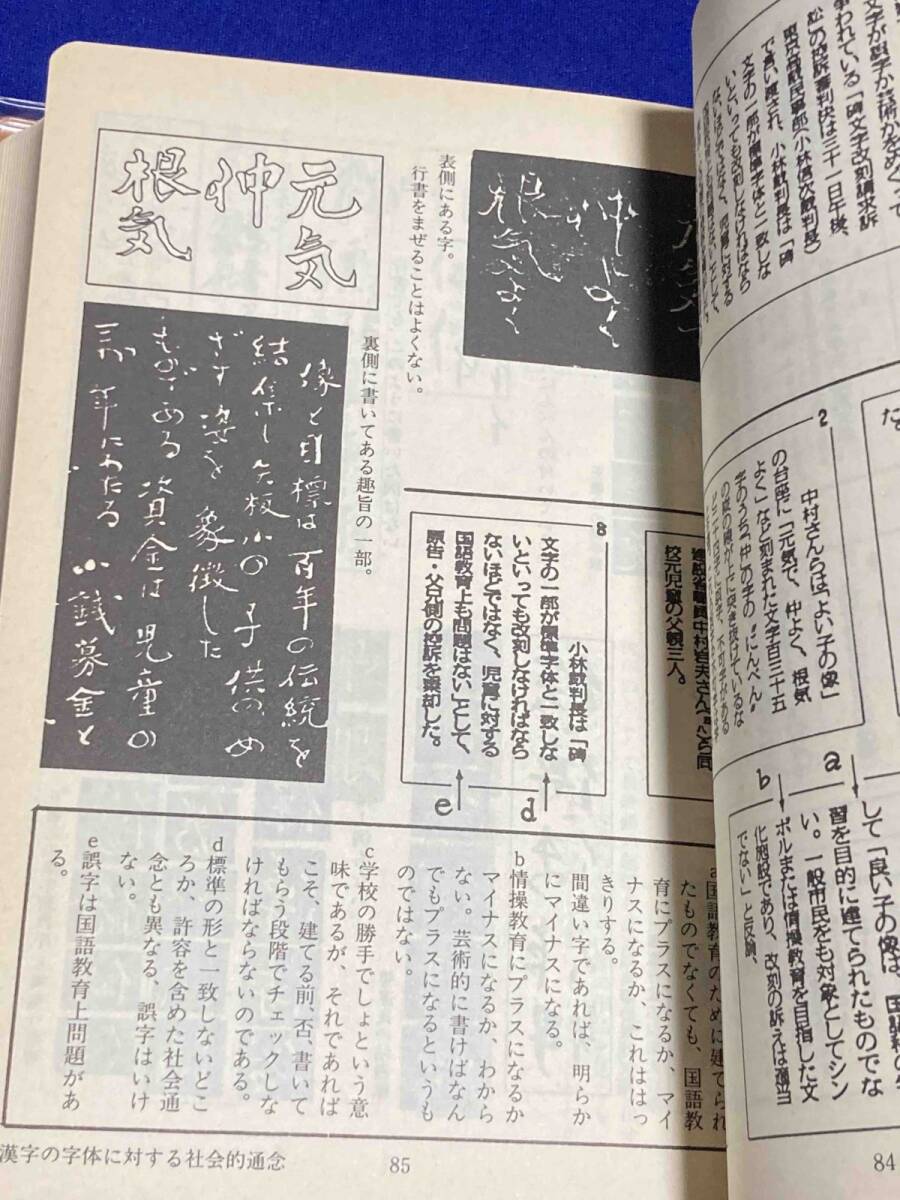 文字の一部が標準字体と一致しな
いといっても改刻しなければなら
ないほどではなく、児童に対する
争われている「碑文字改刻請求訴
訟」の控訴審判決は三十一日午後、
東京高裁民事部（小林信次裁判長）
で言い渡され、小林裁判長は「碑
2
中村さんらは「よい子の像」
の台座に「元気で、仲よく、根気
よく」など刻まれた文字百三十五
字のうち、「仲」の字の〝にんべん〟
a
して「良い子の像は、国語科の学
習を目的に建てられたものでな
い。一般市民をも対象としてシン
b
ボルまたは情操教育を目指した文
化施設であり、改刻の訴えは適当
でない」と反論。
84
元気
仲
根気
仲よく
根気よく
表側にある字。
行書をまぜることはよくない。
裏側に書いてある趣旨の一部。
像と目標は百年の伝統を
結集し矢板小の子供のめ
ざす姿を象徴した
ものである資金は児童の
三ヶ年にわたる小銭募金と
校元児童の父親三人。
8
小林裁判長は「碑
文字の一部が標準字体と一致しな
いといっても改刻しなければなら
ないほどではなく、児童に対する
国語教育上も問題はない」として、
原告・父兄側の控訴を棄却した。
d
e
a国語教育のために建てられ
たものでなくても、国語教
育にプラスになるか、マイ
ナスになるか、これははっ
きりする。
間違い字であれば、明らか
にマイナスになる。
b情操教育にプラスになるか
マイナスになるか、わから
ない。芸術的に書けばなん
でもプラスになるというも
のではない。
c学校の勝手でしょという意
味であるが、それであれば
こそ、建てる前、否、書いて
もらう段階でチェックしな
ければならないのである。
d標準の形と一致しないどこ
ろか、許容を含めた社会通
念とも異なる、誤字はいけ
ない。
e誤字は国語教育上問題があ
る。
漢字の字体に対する社会的通念
85